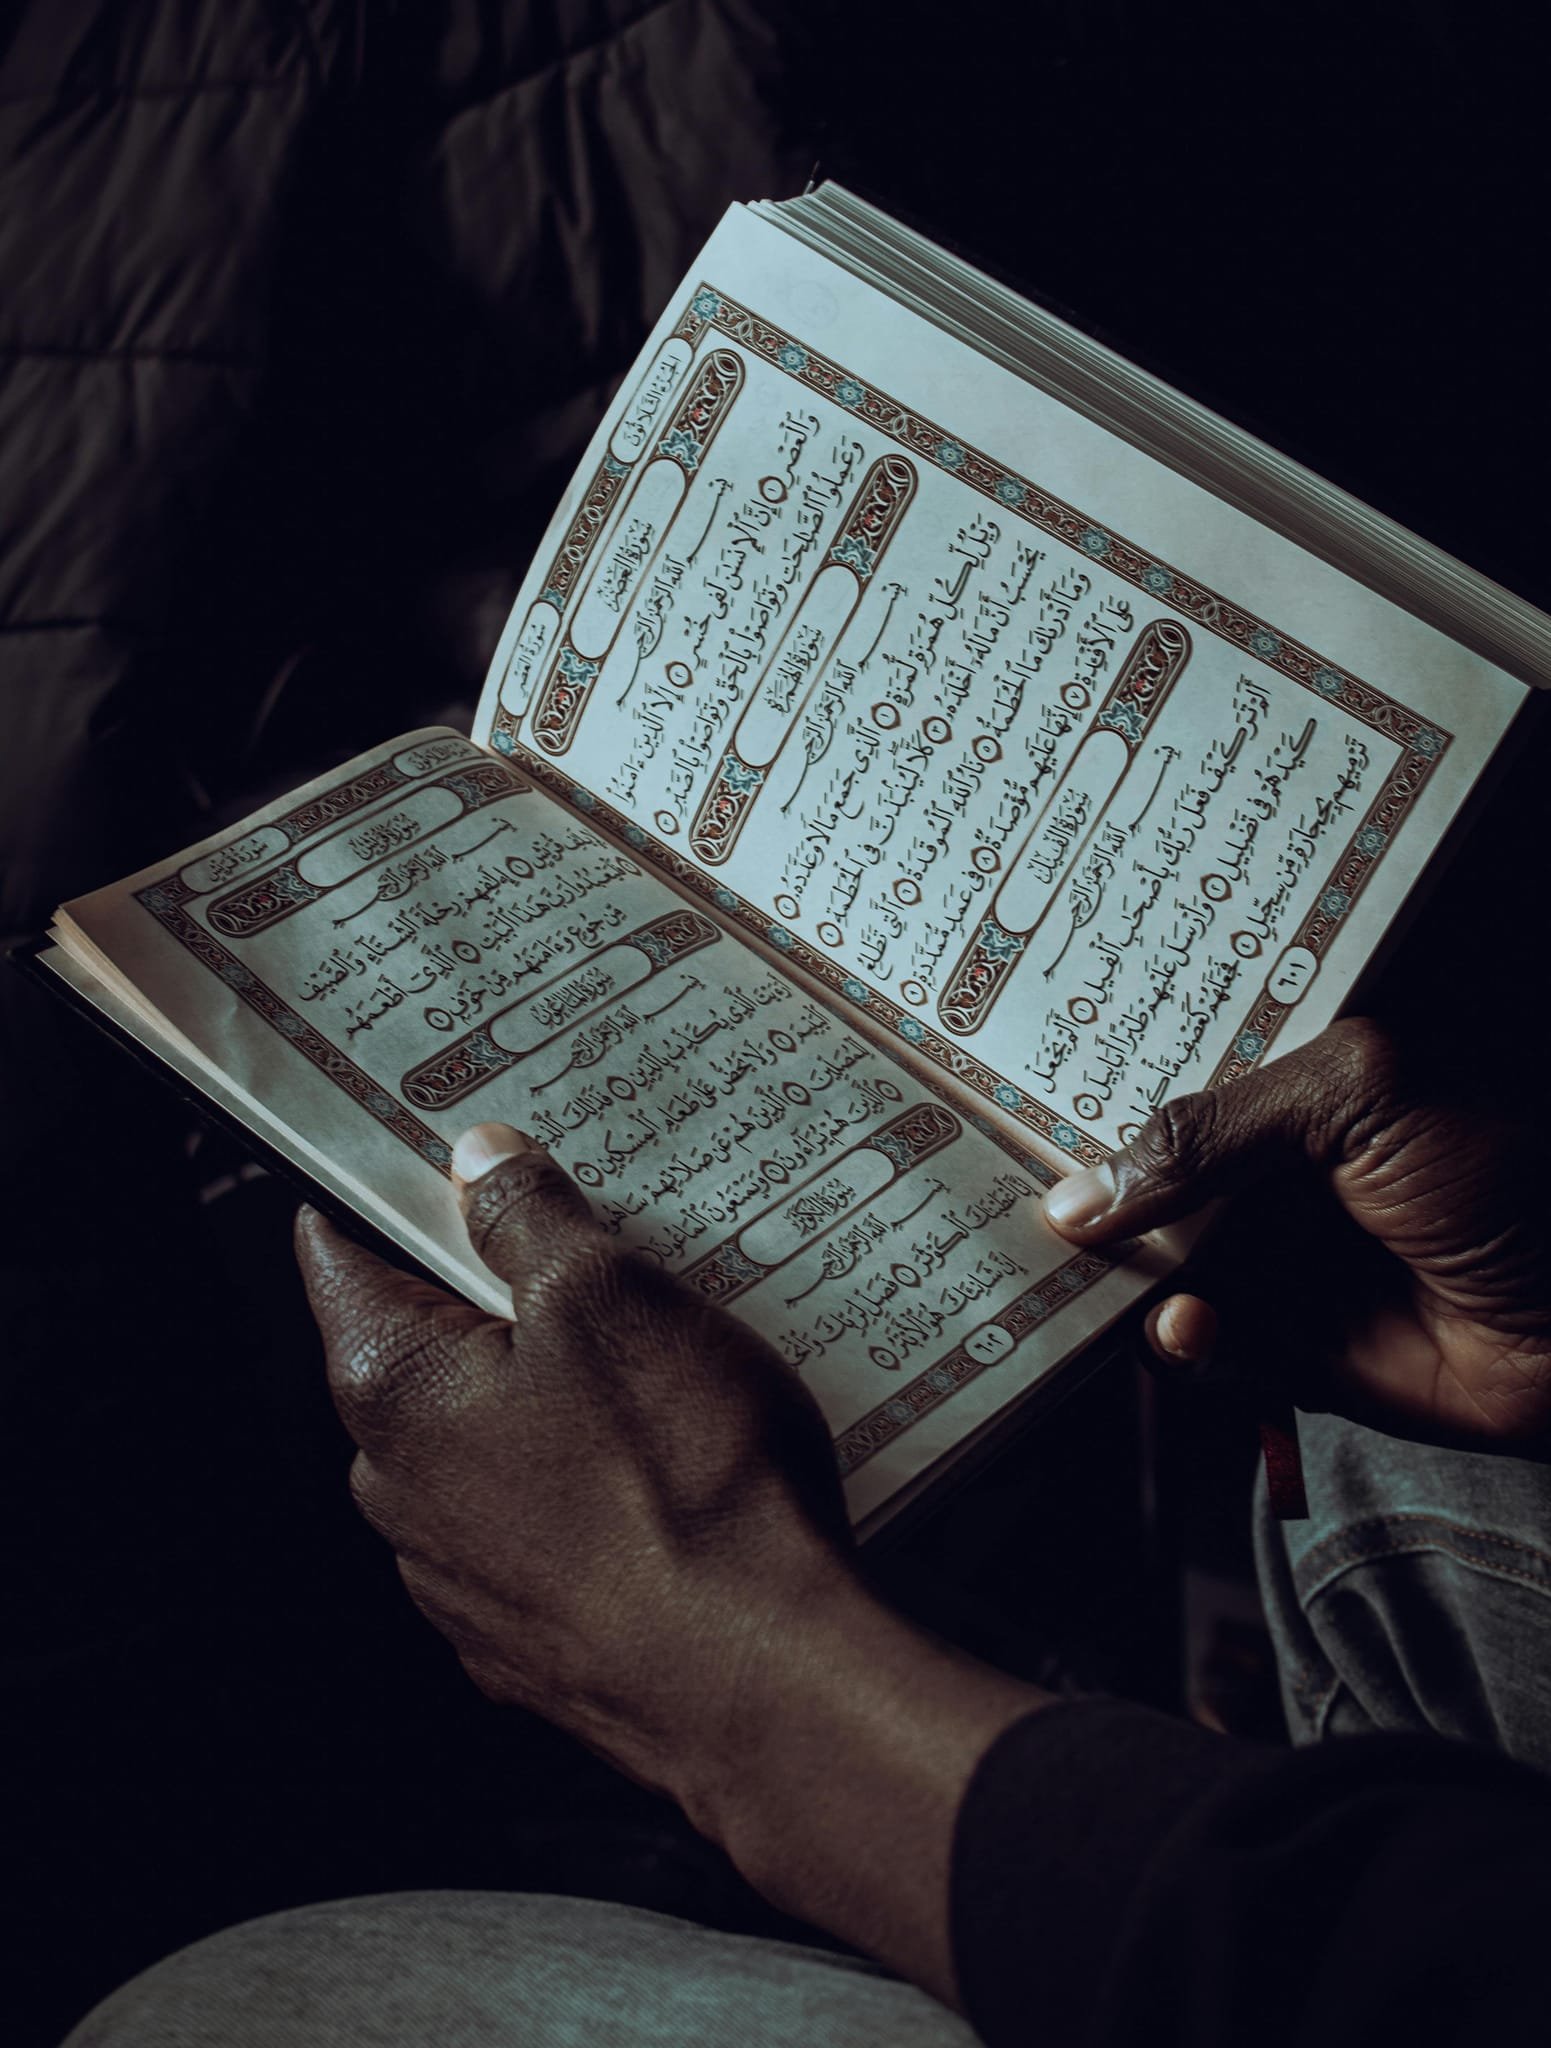 سُورَةُ العَصْرِ
الجُزْءُ الثَّلَاثُونَ
سُورَةُ العَصْرِ
بِسْمِ ٱللَّهِ ٱلرَّحْمَٰنِ ٱلرَّحِيمِ
وَٱلْعَصْرِ ١ إِنَّ ٱلْإِنسَٰنَ لَفِي خُسْرٍ ٢ إِلَّا ٱلَّذِينَ ءَامَنُوا۟
وَعَمِلُوا۟ ٱلصَّٰلِحَٰتِ وَتَوَاصَوْا۟ بِٱلْحَقِّ وَتَوَاصَوْا۟ بِٱلصَّبْرِ ٣
سُورَةُ الهُمَزَةِ
بِسْمِ ٱللَّهِ ٱلرَّحْمَٰنِ ٱلرَّحِيمِ
وَيْلٌ لِّكُلِّ هُمَزَةٍ لُّمَزَةٍ ١ ٱلَّذِى جَمَعَ مَالًا وَعَدَّدَهُۥ ٢
يَحْسَبُ أَنَّ مَالَهُۥٓ أَخْلَدَهُۥ ٣ كَلَّا لَيُنۢبَذَنَّ فِى ٱلْحُطَمَةِ ٤
وَمَآ أَدْرَىٰكَ مَا ٱلْحُطَمَةُ ٥ نَارُ ٱللَّهِ ٱلْمُوقَدَةُ ٦ ٱلَّتِى تَطَّلِعُ
عَلَى ٱلْأَفْـِٔدَةِ ٧ إِنَّهَا عَلَيْهِم مُّؤْصَدَةٌ ٨ فِى عَمَدٍ مُّمَدَّدَةٍۭ ٩
سُورَةُ الفِيلِ
بِسْمِ ٱللَّهِ ٱلرَّحْمَٰنِ ٱلرَّحِيمِ
أَلَمْ تَرَ كَيْفَ فَعَلَ رَبُّكَ بِأَصْحَٰبِ ٱلْفِيلِ ١ أَلَمْ يَجْعَلْ
كَيْدَهُمْ فِى تَضْلِيلٍ ٢ وَأَرْسَلَ عَلَيْهِمْ طَيْرًا أَبَابِيلَ ٣
تَرْمِيهِم بِحِجَارَةٍ مِّن سِجِّيلٍ ٤ فَجَعَلَهُمْ كَعَصْفٍ مَّأْكُولٍۭ
٦٠١
سُورَةُ قُرَيْشٍ
الجُزْءُ الثَّلَاثُونَ
سُورَةُ قُرَيْشٍ
بِسْمِ ٱللَّهِ ٱلرَّحْمَٰنِ ٱلرَّحِيمِ
لِإِيلَٰفِ قُرَيْشٍ ١ إِۦلَٰفِهِمْ رِحْلَةَ ٱلشِّتَآءِ وَٱلصَّيْفِ
٢ فَلْيَعْبُدُوا۟ رَبَّ هَٰذَا ٱلْبَيْتِ ٣ ٱلَّذِىٓ أَطْعَمَهُم
مِّن جُوعٍ وَءَامَنَهُم مِّنْ خَوْفٍۭ ٤
سُورَةُ المَاعُونِ
بِسْمِ ٱللَّهِ ٱلرَّحْمَٰنِ ٱلرَّحِيمِ
أَرَءَيْتَ ٱلَّذِى يُكَذِّبُ بِٱلدِّينِ ١ فَذَٰلِكَ ٱلَّذِى
ٱلْيَتِيمَ ٢ وَلَا يَحُضُّ عَلَىٰ طَعَامِ ٱلْمِسْكِينِ ٣
لِّلْمُصَلِّينَ ٤ ٱلَّذِينَ هُمْ عَن صَلَاتِهِمْ سَاهُونَ
٥ ٱلَّذِينَ هُمْ يُرَآءُونَ ٦ وَيَمْنَعُونَ ٱلْمَاعُونَ
سُورَةُ الكَوْثَرِ
بِسْمِ ٱللَّهِ ٱلرَّحْمَٰنِ ٱلرَّحِيمِ
إِنَّآ أَعْطَيْنَٰكَ ٱلْكَوْثَرَ ١ فَصَلِّ لِرَبِّكَ وَٱنْحَرْ
إِنَّ شَانِئَكَ هُوَ ٱلْأَبْتَرُ ٣
٦٠٢